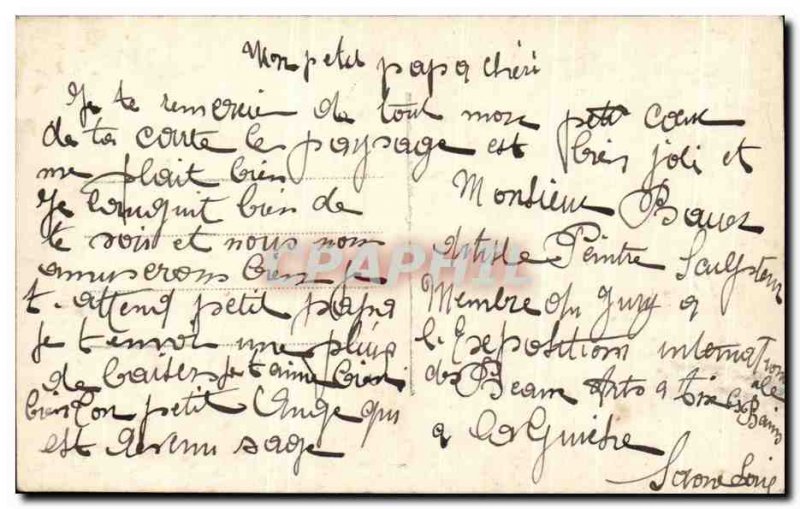 Mon petit papa chéri
Je te remercie de tout mon petit cœur
de ta carte le paysage est bien joli et
me plait bien
Je languit bien de
te voir et nous nous
amuserons bien je
t-attend petit papa
je t'envoi une pluis
de baiser je t'aime bien
bien ton petit Ange qui
est devenu sage
Monsieur Bauer
Artiste Peintre Sculpteur
Membre du jury a
l'Exposition internationale
des Beaux Arts a Aix les Bains
a La Guiche
Saone Loire
CPAPHIL